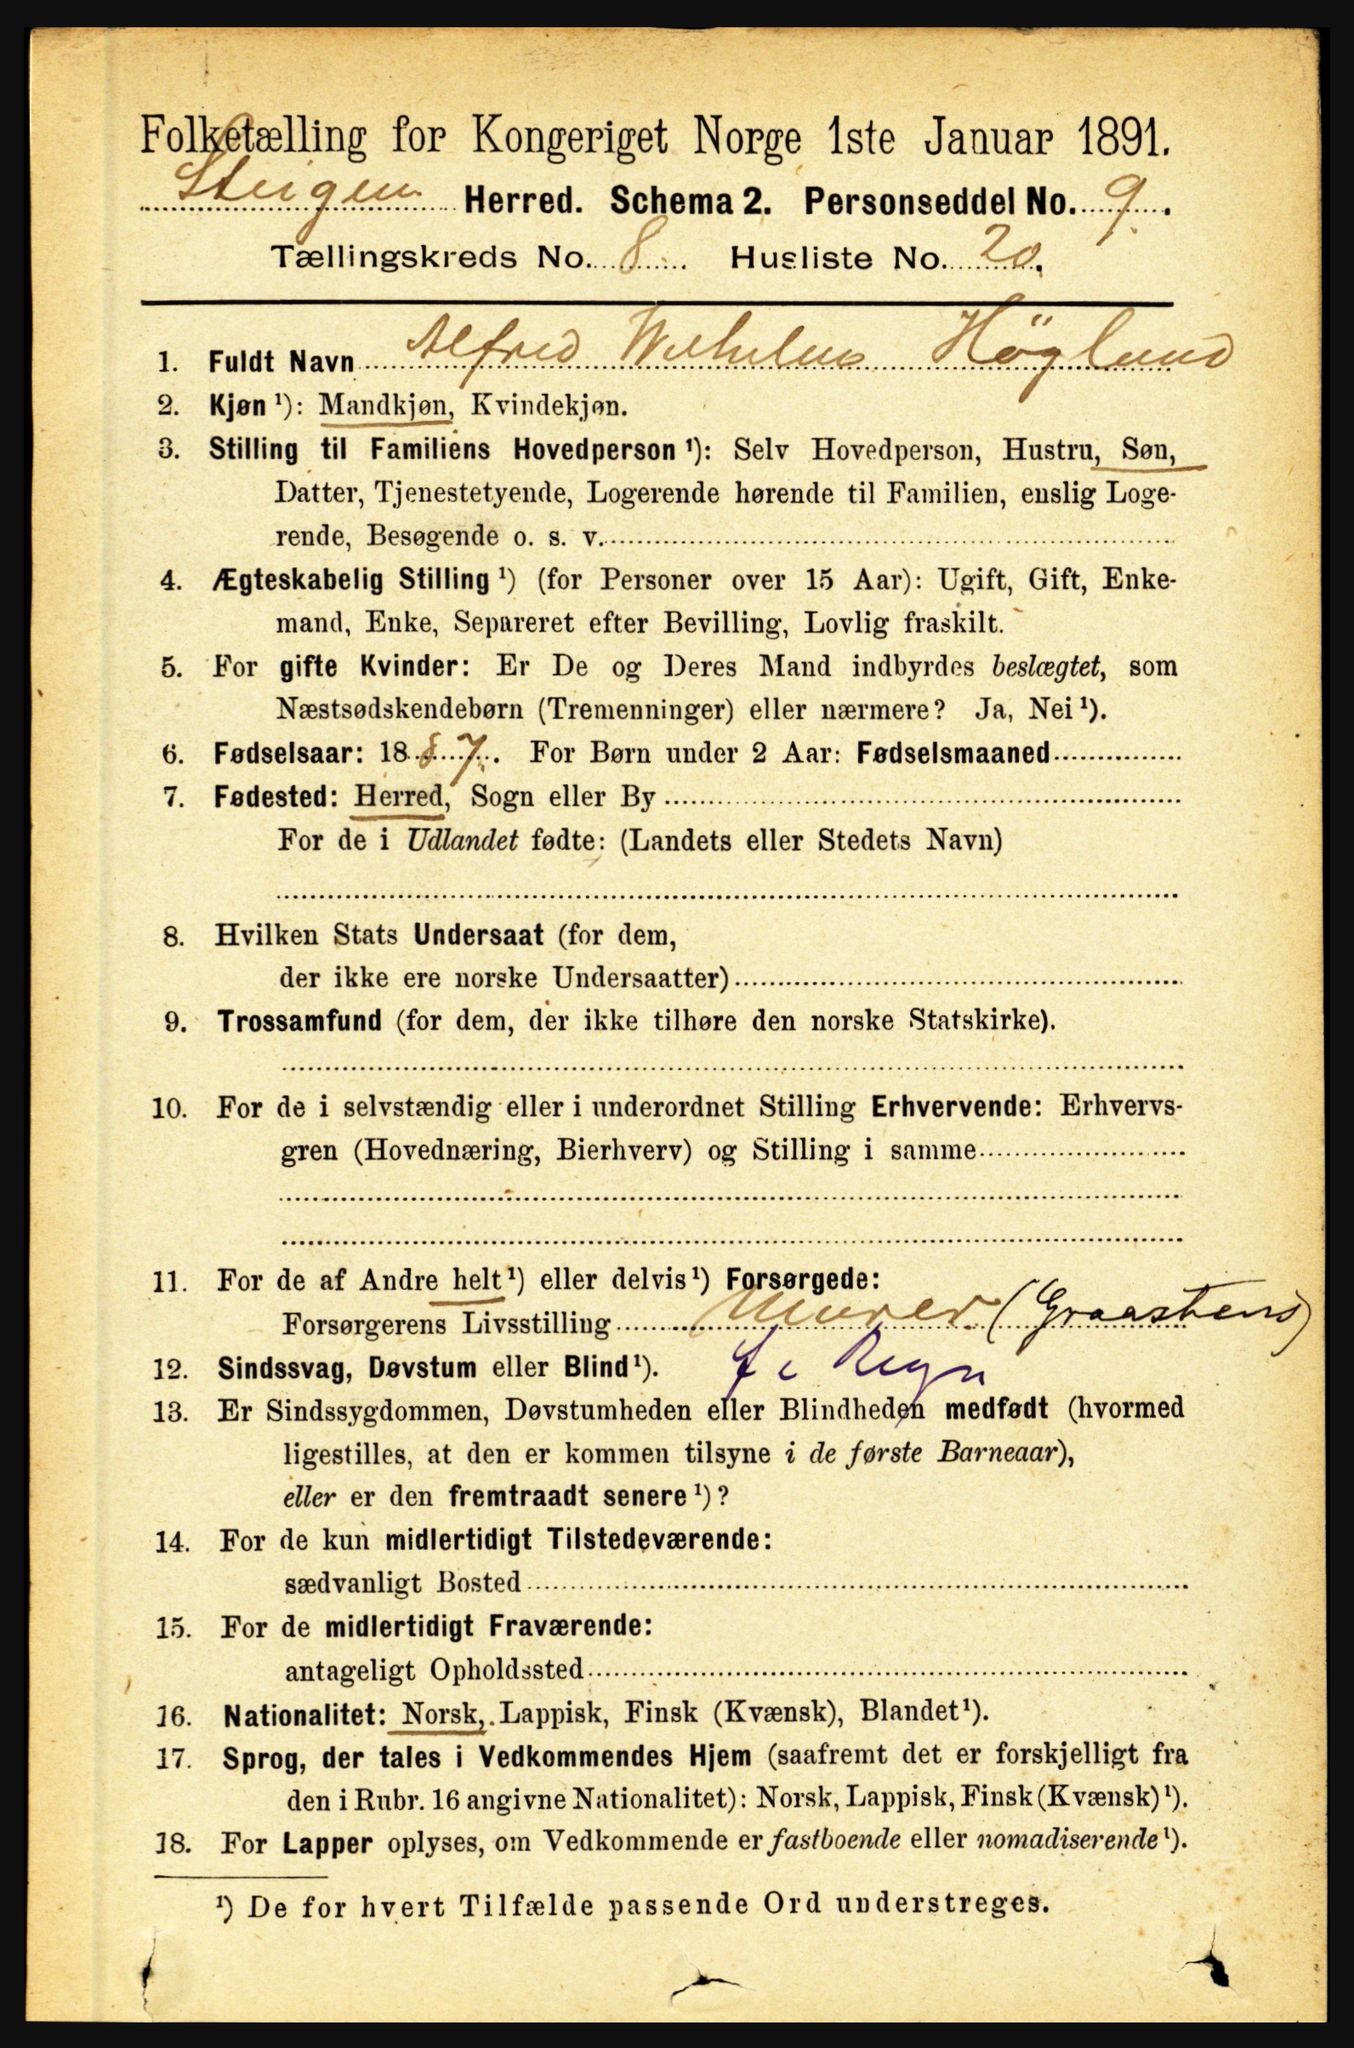 Folketælling for Kongeriget Norge 1ste Januar 1891.
Steigen Herred. Schema 2. Personseddel No. 9.
Tællingskreds No. 8. Husliste No. 20.
1. Fuldt Navn Alfred Wilhelm Höglund
2. Kjøn ¹): Mandkjøn, Kvindekjøn.
3. Stilling til Familiens Hovedperson ¹): Selv Hovedperson, Hustru, Søn,
Datter, Tjenestetyende, Logerende hørende til Familien, enslig Loge-
rende, Besøgende o. s. v.
4. Ægteskabelig Stilling ¹) (for Personer over 15 Aar): Ugift, Gift, Enke-
mand, Enke, Separeret efter Bevilling, Lovlig fraskilt.
5. For gifte Kvinder: Er De og Deres Mand indbyrdes beslægtet, som
Næstsødskendebørn (Tremenninger) eller nærmere? Ja, Nei ¹).
6. Fødselsaar: 1887. For Børn under 2 Aar: Fødselsmaaned
7. Fødested: Herred, Sogn eller By
For de i Udlandet fødte: (Landets eller Stedets Navn)
8. Hvilken Stats Undersaat (for dem,
der ikke ere norske Undersaatter)
9. Trossamfund (for dem, der ikke tilhøre den norske Statskirke).
10. For de i selvstændig eller i underordnet Stilling Erhvervende: Erhvervs-
gren (Hovednæring, Bierhverv) og Stilling i samme
11. For de af Andre helt ¹) eller delvis ¹) Forsørgede:
Forsørgerens Livsstilling Murer (Graastens)
12. Sindssvag, Døvstum eller Blind ¹). f. e Regn
13. Er Sindssygdommen, Døvstumheden eller Blindheden medfødt (hvormed
ligestilles, at den er kommen tilsyne i de første Barneaar),
eller er den fremtraadt senere ¹)?
14. For de kun midlertidigt Tilstedeværende:
sædvanligt Bosted
15. For de midlertidigt Fraværende:
antageligt Opholdssted
16. Nationalitet: Norsk, Lappisk, Finsk (Kvænsk), Blandet ¹).
17. Sprog, der tales i Vedkommendes Hjem (saafremt det er forskjelligt fra
den i Rubr. 16 angivne Nationalitet): Norsk, Lappisk, Finsk (Kvænsk) ¹).
18. For Lapper oplyses, om Vedkommende er fastboende eller nomadiserende ¹).
¹) De for hvert Tilfælde passende Ord understreges.